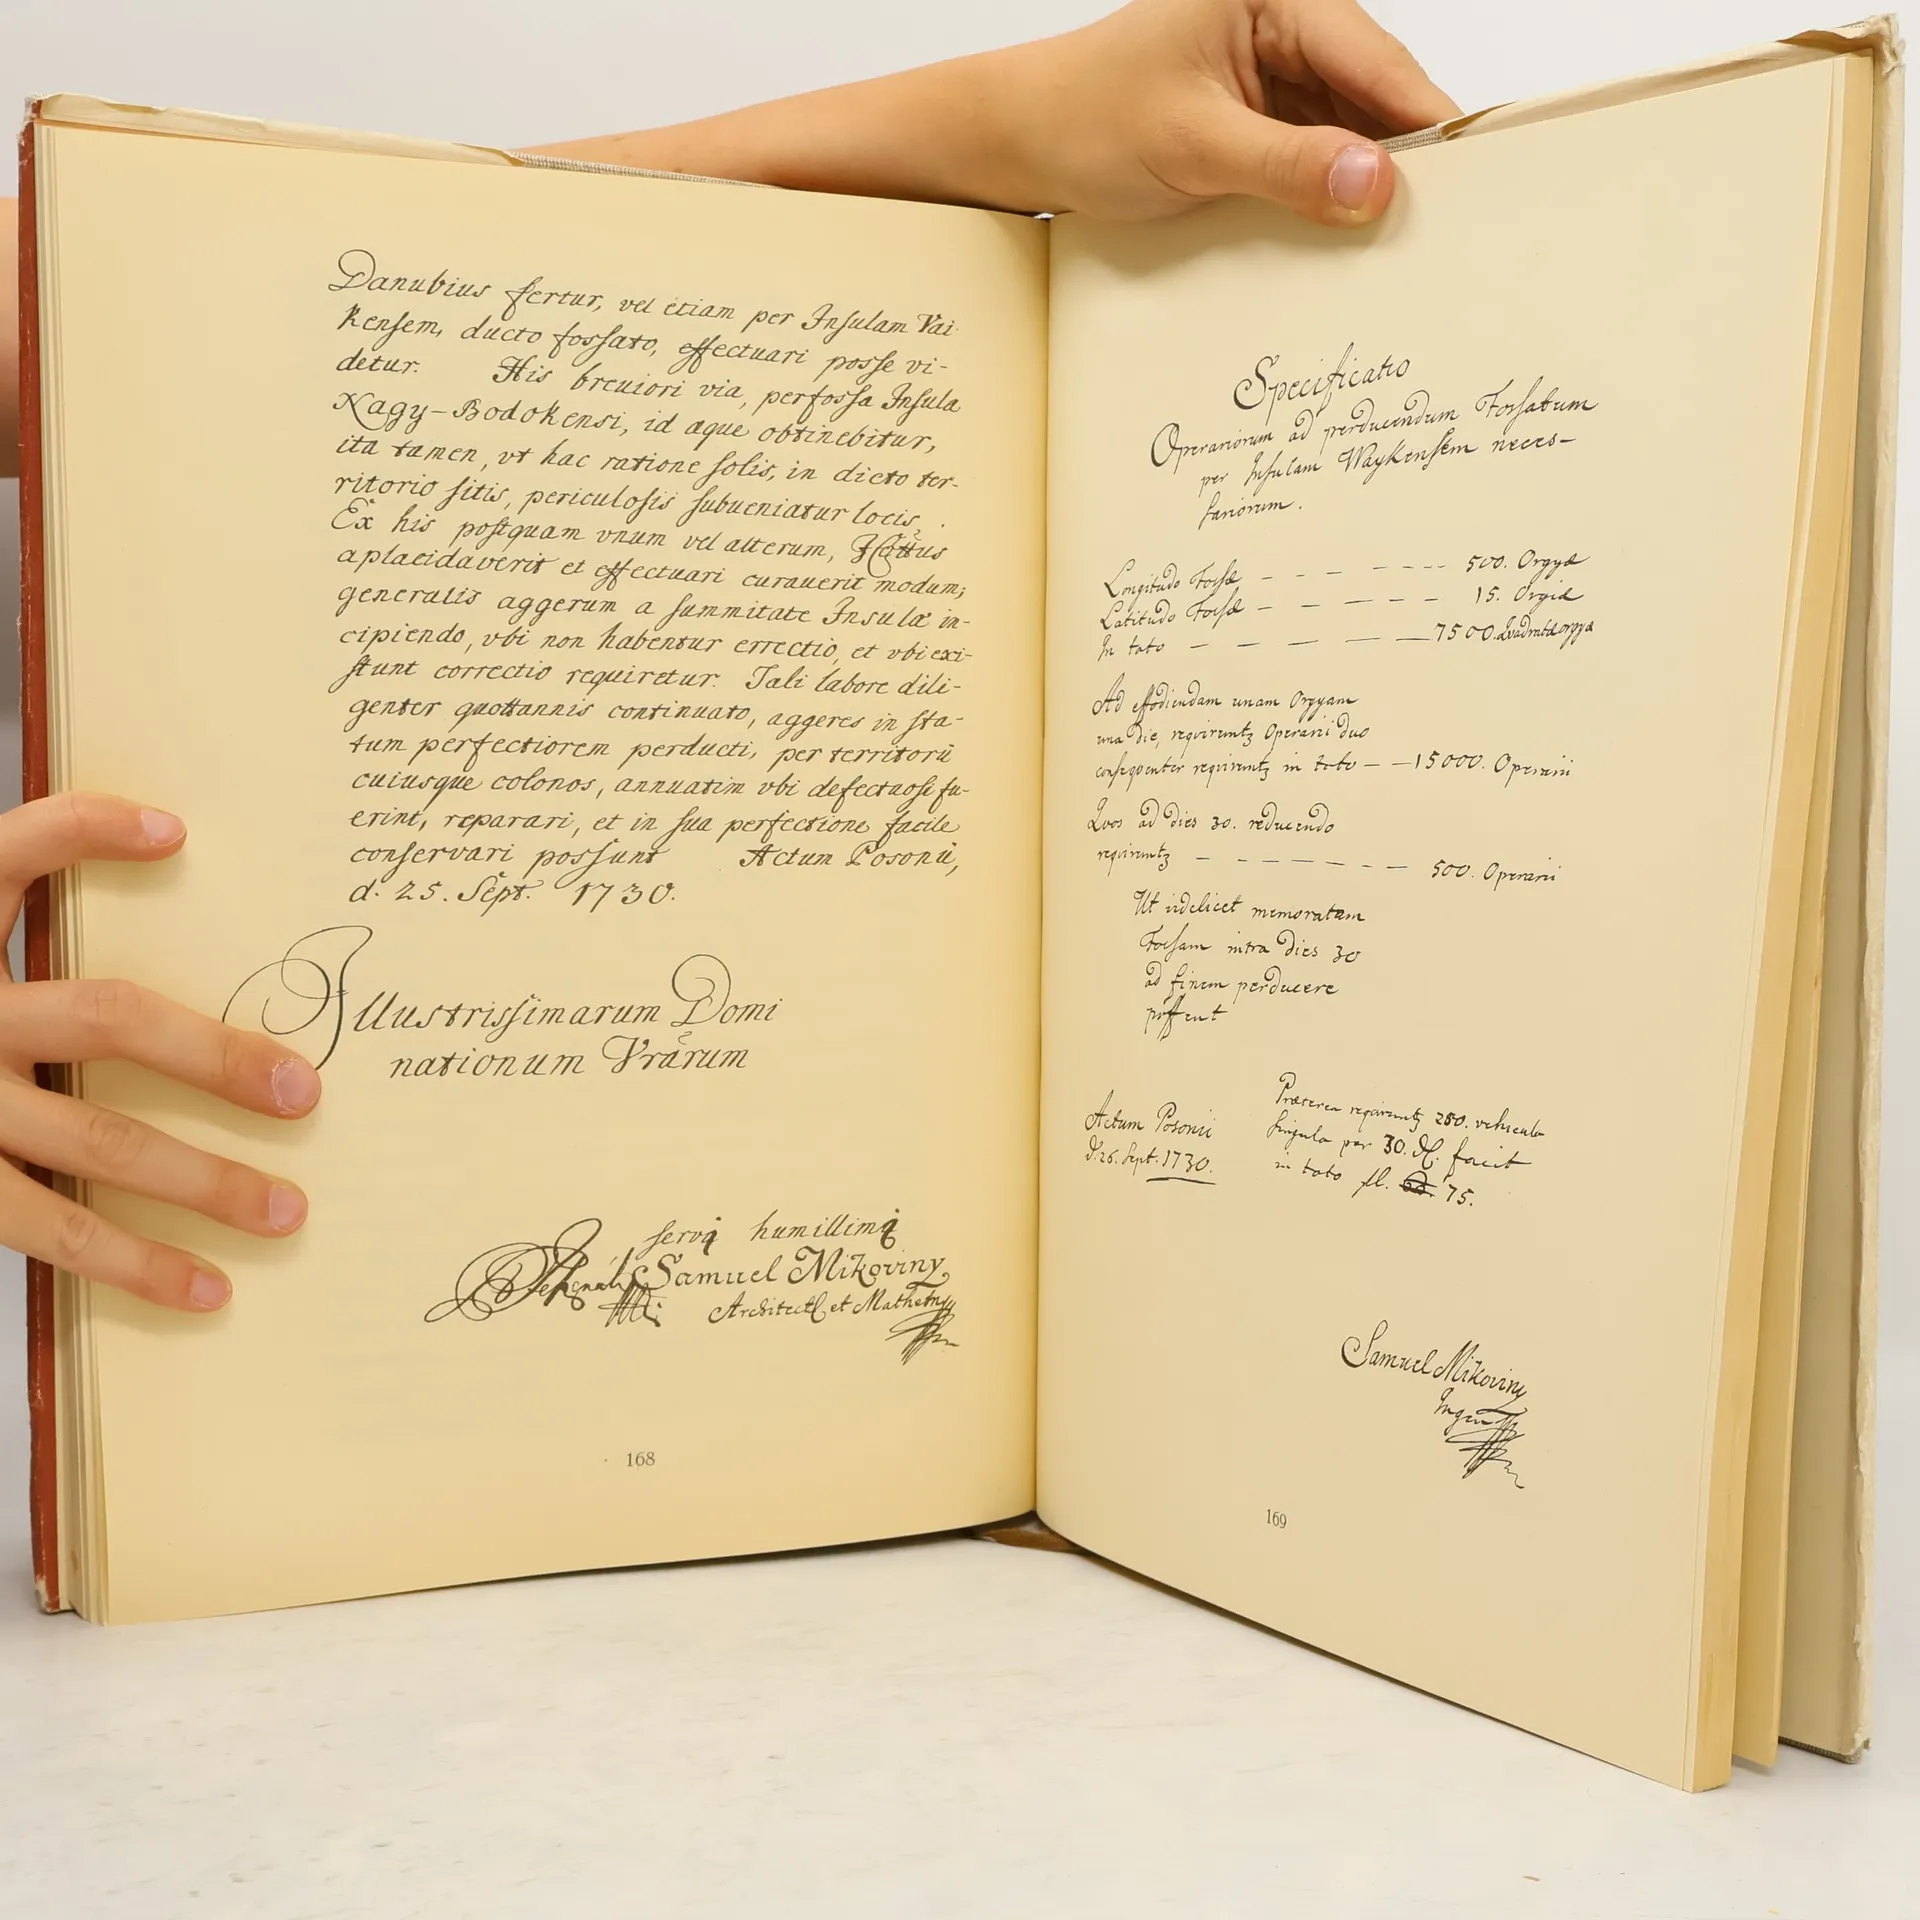 Danubius fertur, vel etiam per Insulam Vai-
kensem, ducto fossato, effectuari posse vi-
detur. His breuiori via, perfossa Insula
Nagy-Bodokensi, id æque obtinebitur,
ita tamen, vt hac ratione solis, in dicto ter-
ritorio sitis, periculosis subueniatur locis.
Ex his postquam vnum vel alterum,
aplacidaverit et effectuari curauerit modum;
generalis aggerum a summitate Insulæ in-
cipiendo, vbi non habentur errectio, et vbi exi-
stunt correctio requiretur. Tali labore dili-
genter quottannis continuato, aggeres in sta-
tum perfectiorem perducti, per territorÿ
cuiusque colonos, annuatim vbi defectuosi fu-
erint, reparari, et in sua perfectione facile
conservari possunt Actum Posonÿ,
d. 25. Sept. 1730.
Illustrissimarum Domi
nationum Vrarum
servi humillimi
Samuel Mikoviny
Architect et Mathem
168
Specificatio
Operariorum ad perducendum Fossatum
per Insulam Waykensem neces-
sariorum.
Longitudo Fossæ - - - - - - - 500. Orgyæ
Latitudo Fossæ - - - - - - 15. Orgiæ
In toto - - - - - 7500. Quadratæ orgyæ
Ad effodiendam unam Orgyam
una die, requiruntz Operarii duo
consequenter requiruntz in toto - - 15000. Operarii
Quos ad dies 30. reducendo
requiruntz - - - - - - - 500. Operarii
Ut videlicet memoratam
Fossam intra dies 30
ad finem perducere
possent
Præterea requiruntz 250. vehicula
singula per 30. facit
in toto fl. 75.
Actum Posonii
d. 26. Sept. 1730.
Samuel Mikoviny
Ingen
169